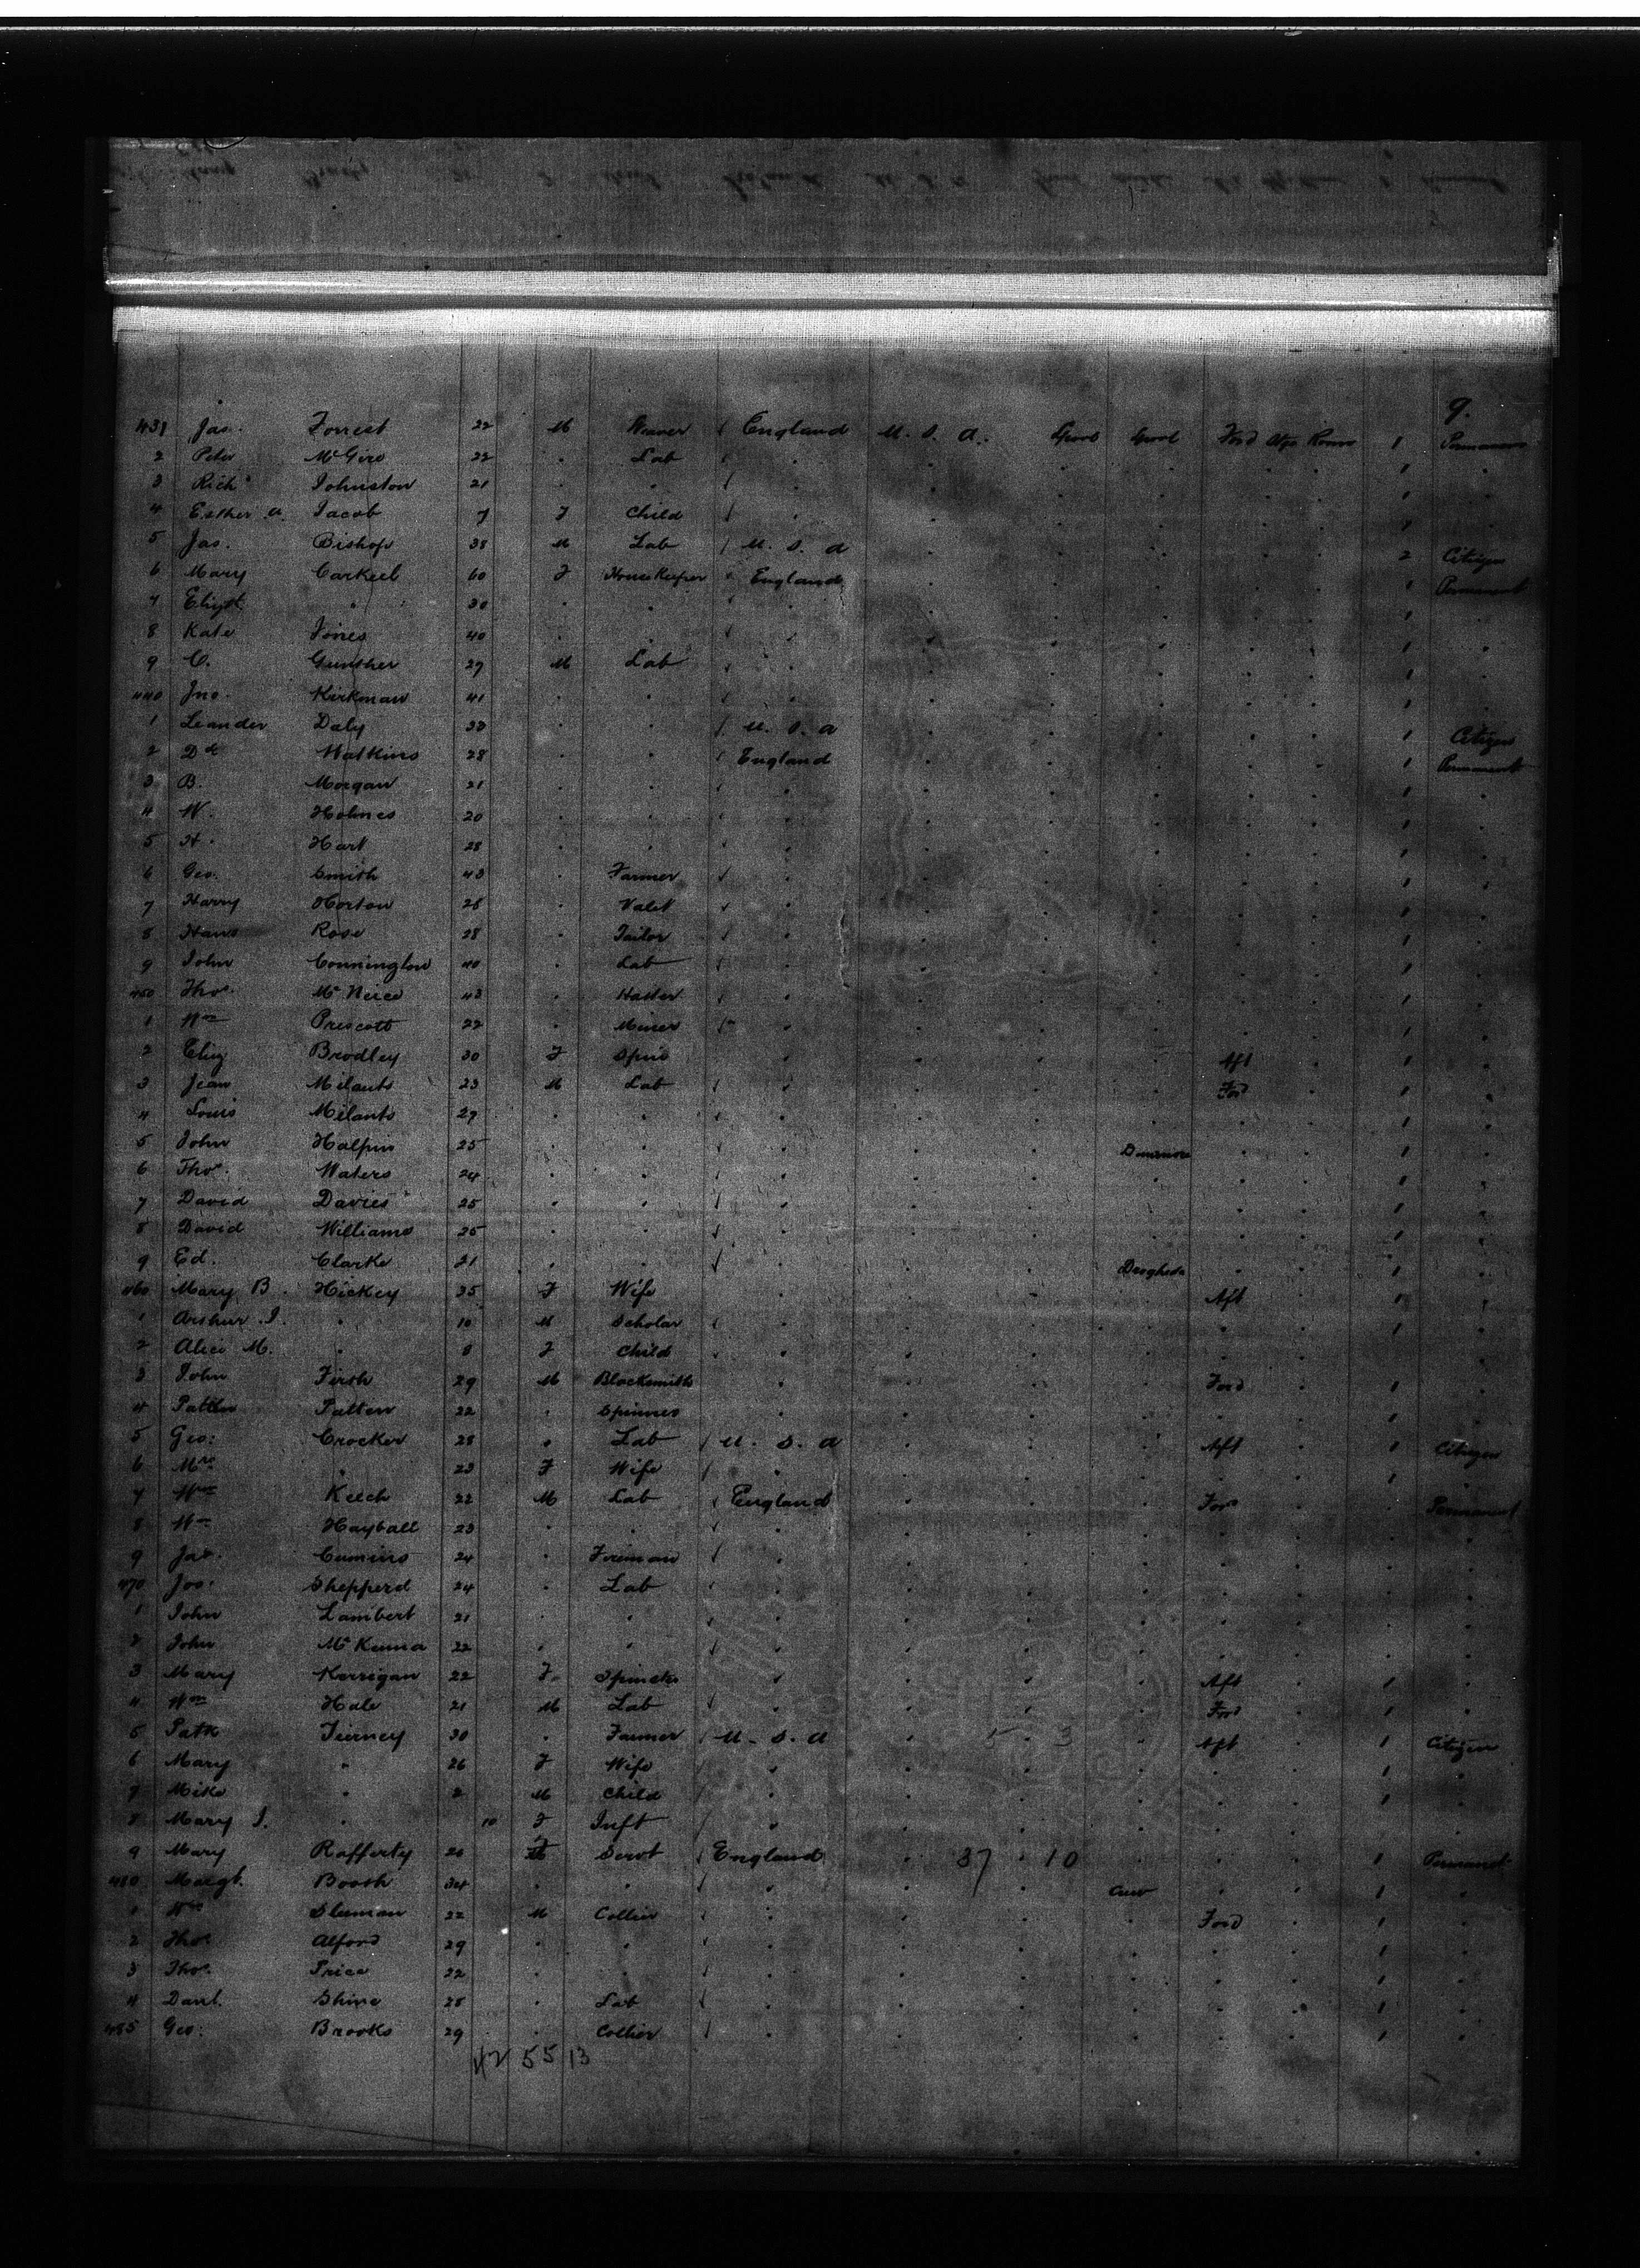 9.
431 Jas. Forrest 22 M Weaver England U. S. A. Lpool Lpool Ford 1 Permanent
2 Peter 22 " Lab " " 1 "
3 Rich Johnston 21 " " " " 1 "
4 Esther A. Jacob 7 F Child " " 1 "
5 Jas. Bishop 38 M Lab U. S. A " 2 Citizen
6 Mary 60 F Housekeeper England " 1 Permanent
7 " 30 " " " " 1 "
8 Kate Jones 40 " " " " 1 "
9 C. Gunther 29 M Lab " " 1 "
440 Jno. Kirkman 41 " " " " 1 "
1 Leander Daly 33 " " U. S. A " 1 Citizen
2 Dd Watkins 28 " " England " 1 Permanent
3 B. Morgan 21 " " " " 1 "
4 W. Holmes 20 " " " " 1 "
5 H. Hart 28 " " " " 1 "
6 Geo. Smith 43 " Farmer " " 1 "
7 Harry Horton 26 " Valet " " 1 "
8 Hans Rose 28 " Tailor " " 1 "
9 John Connington 40 " Lab " " 1 "
450 Thos. 43 " Hatter " " 1 "
1 Wm Prescott 22 " Miner " " 1 "
2 Eliz Brodley 30 F Spin " " Aft 1 "
3 Jean Milants 23 M Lab " " Ford 1 "
4 Louis Milants 29 " " " " 1 "
5 John Halpin 25 " " " " 1 "
6 Thos. Waters 24 " " " " 1 "
7 David Davies 25 " " " " 1 "
8 David Williams 25 " " " " 1 "
9 Ed. Clarke 21 " " " " Drogheda 1 "
460 Mary B. Hickey 35 F Wife " " Aft 1 "
1 Arthur J. " 10 M Scholar " " 1 "
2 Alice M. " 8 F Child " " "
3 John Firth 29 M Blacksmith " " Ford 1 "
4 Patten 22 " Spinner " " 1 "
5 Geo: Crocker 28 " Lab U. S. A " Aft 1 Citizen
6 Mrs " 23 F Wife " " 1 "
7 Wm Keech 22 M Lab England " Ford Permanent
8 Wm Hayball 23 " " " " "
9 Jas. Cumins 24 " Fireman " " "
470 Jos. Shepperd 24 " Lab " " "
1 John Lambert 21 " " " " "
2 John McKenna 22 " " " " "
3 Mary Kerrigan 22 F " " Aft 1 "
4 Wm Hale 21 M Lab " " Ford 1 "
5 Patk Tierney 30 " Farmer U. S. A " 5 3 Aft 1 Citizen
6 Mary " 26 F Wife " " 1 "
7 Mike " 2 M Child " " 1 "
8 Mary J. " 10 F Inft " " "
9 Mary Rafferty 20 F Servt England " 37 10 1 Permanent
480 Margt. Booth 34 " " " " 1 "
1 Wm Sluman 22 M Collier " " Ford 1 "
2 Thos Alford 29 " " " " 1 "
3 Thos. Price 22 " " " " 1 "
4 Danl. Shine 28 " Lab " " 1 "
485 Geo: Brooks 29 " Collier " " 1 "
42 55 13